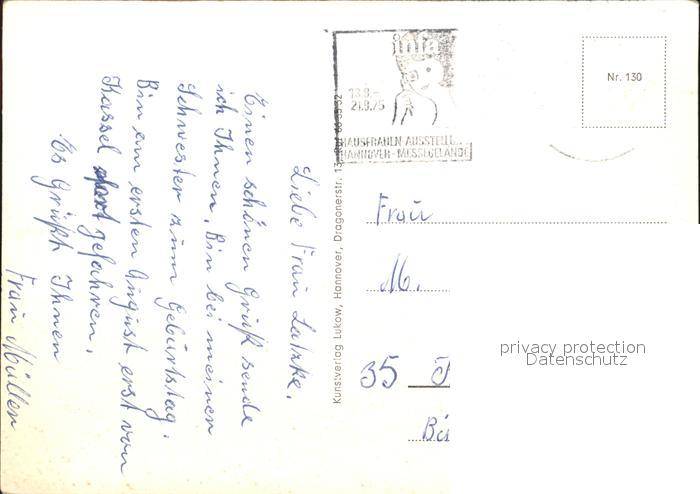 Liebe Frau Latzke.
Einen schönen Gruß sende
ich Ihnen. Bin bei meinen
Schwester zum Gebürtstag.
Bin am ersten August erst von
Kassel gefahren.
Es Grüßt Ihnen
Frau Müller
infa
18.9.-
21.9.75
HAUSFRAUEN-AUSSTELL.
HANNOVER-MESSEGELÄNDE
Nr. 130
Kunstverlag Lukow, Hannover, Dragonerstr. 13
Frau
M.
35
privacy protection
Datenschutz